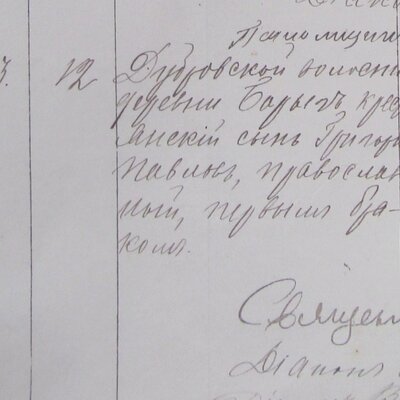 Псаломщик
3. 12 Дубровской волости
деревни Барыгъ крес
янскій сынъ Григорі
Павловъ, православ
ный, первымъ бра-
комъ.
Священ
Діаконъ